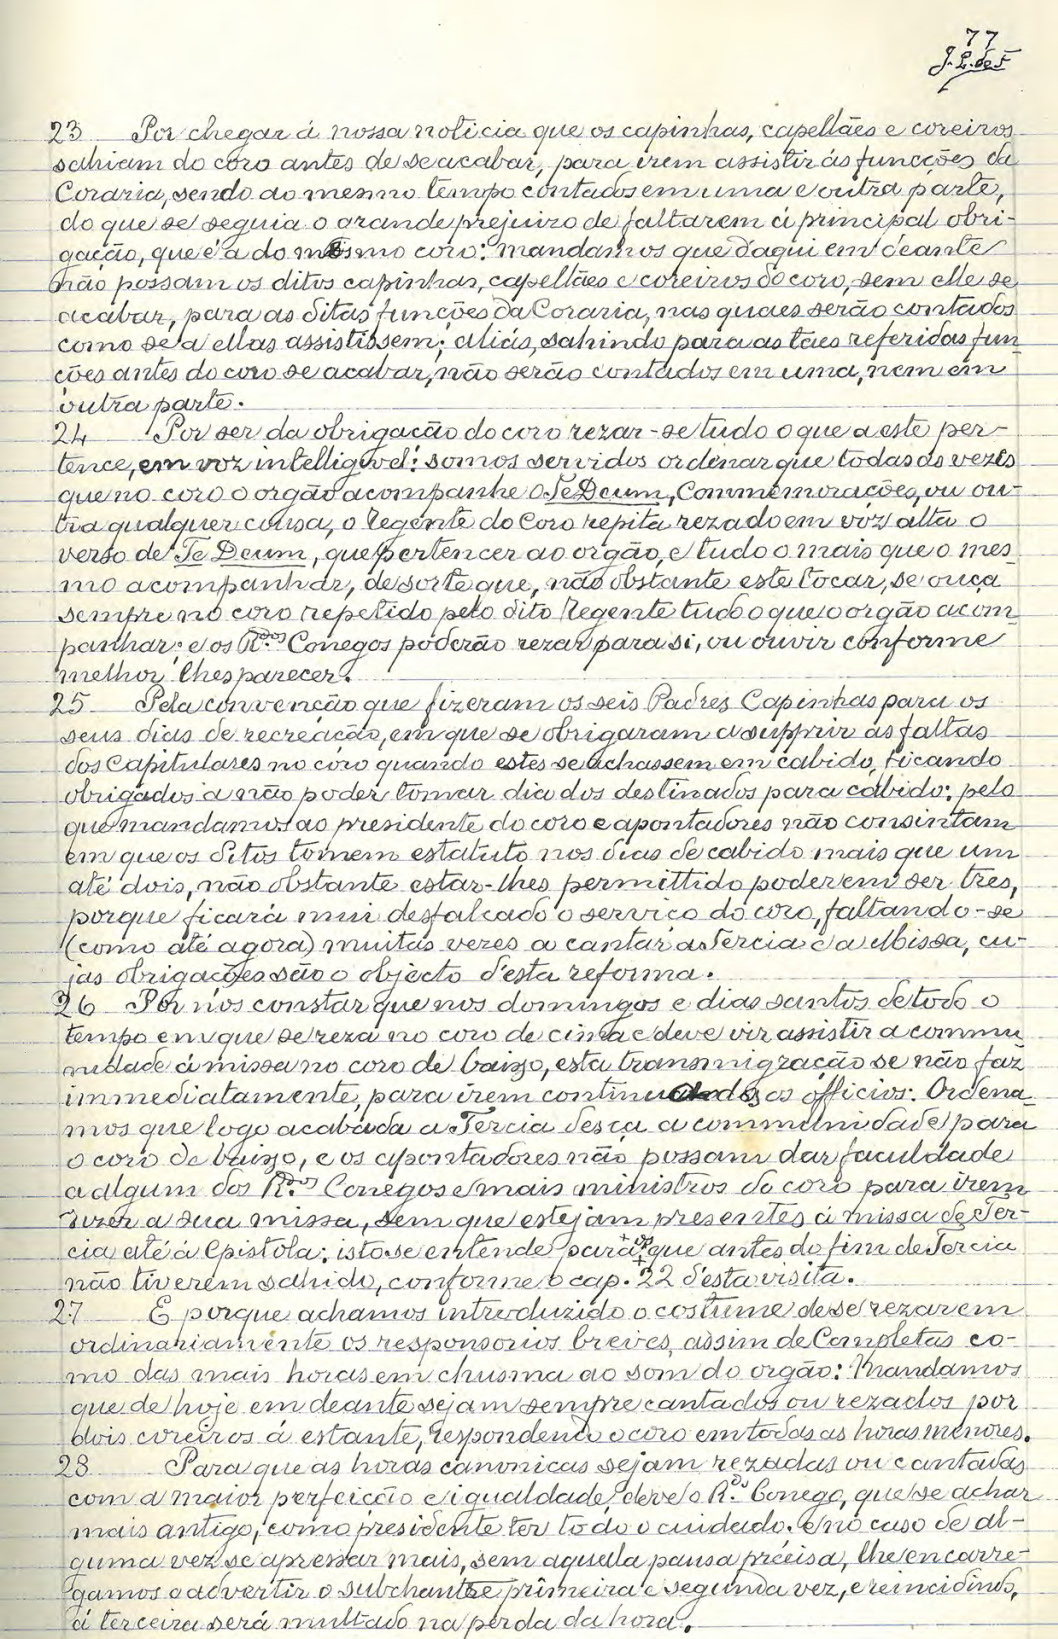 77
J. L. de F
23 Por chegar á nossa noticia que os capinhas, capellães e coreiros
sahiam do côro antes de se acabar, para irem assistir ás funcções da
Coraria, sendo ao mesmo tempo contados em uma e outra parte,
do que se seguia o grande prejuizo de faltarem á principal obri-
gação, que é a do mesmo côro: mandamos que d'aqui em deante
não possam os ditos capinhas, capellães e coreiros do côro, sem elle se
acabar, para as ditas funcções da Coraria, nas quaes serão contados
como se a ellas assistissem; aliás, sahindo para as taes referidas fun
ções antes do côro se acabar, não serão contados em uma, nem em
outra parte.
24 Por ser da obrigação do coro rezar-se tudo o que a este per-
tence, em voz intelligivel: somos servidos ordenar que todas as vezes
que no coro o orgão acompanhe o Te Deum, Commemorações, ou ou-
tra qualquer cousa, o Regente do Coro repita rezado em voz alta o
verso de Te Deum, que pertencer ao orgão, e tudo o mais que o mes
mo acompanhar, de sorte que, não obstante este tocar, se ouça
sempre no coro repetido pelo dito Regente tudo o que o orgão acom
panhar; e os R.dos Conegos poderão rezar para si, ou ouvir conforme
melhor lhes parecer.
25 Pela convenção que fizeram os seis Padres Capinhas para os
seus dias de recreação, em que se obrigaram a supprir as faltas
dos Capitulares no coro quando estes se achassem em cabido, ficando
obrigados a não poder tomar dia dos destinados para cabido: pelo
que mandamos ao presidente do coro e apontadores não consintam
em que os ditos tomem estatuto nos dias de cabido mais que um
até dois, não obstante estar-lhes permittido poderem ser tres,
porque ficará mui desfalcado o serviço do coro, faltando-se
(como até agora) muitas vezes a cantar a Tercia e a Missa, cu-
jas obrigações são o objecto d'esta reforma.
26 Por nós constar que nos domingos e dias santos de todo o
tempo em que se reza no coro de cima e deve vir assistir a commu
nidade á missa no coro de baixo, esta transmigração se não faz
immediatamente, para irem continuados os officios: Ordena-
mos que logo acabada a Tercia desça a communidade para
o coro de baixo, e os apontadores não possam dar faculdade
a algum dos R.dos Conegos e mais ministros do coro para irem
dizer a sua missa, sem que estejam presentes á missa de Ter-
cia até á Epistola: isto se entende para os que antes do fim de Tercia
não tiverem sahido, conforme o cap. 22 d'esta visita.
27 E porque achamos introduzido o costume de se rezarem
ordinariamente os responsorios breves, assim de Completas co-
mo das mais horas em chusma ao som do orgão: Mandamos
que de hoje em deante sejam sempre cantados ou rezados por
dois coreiros á estante, respondendo o coro em todas as horas menores.
28 Para que as horas canonicas sejam rezadas ou cantadas
com a maior perfeição e igualdade, deve o R.do Conego, que se achar
mais antigo, como presidente ter todo o cuidado. e no caso de al-
guma vez se apressar mais, sem aquella pausa precisa, lhe encarre-
gamos o advertir o subchantre primeira e segunda vez, e reincidindo,
á terceira será multado na perda da hora.